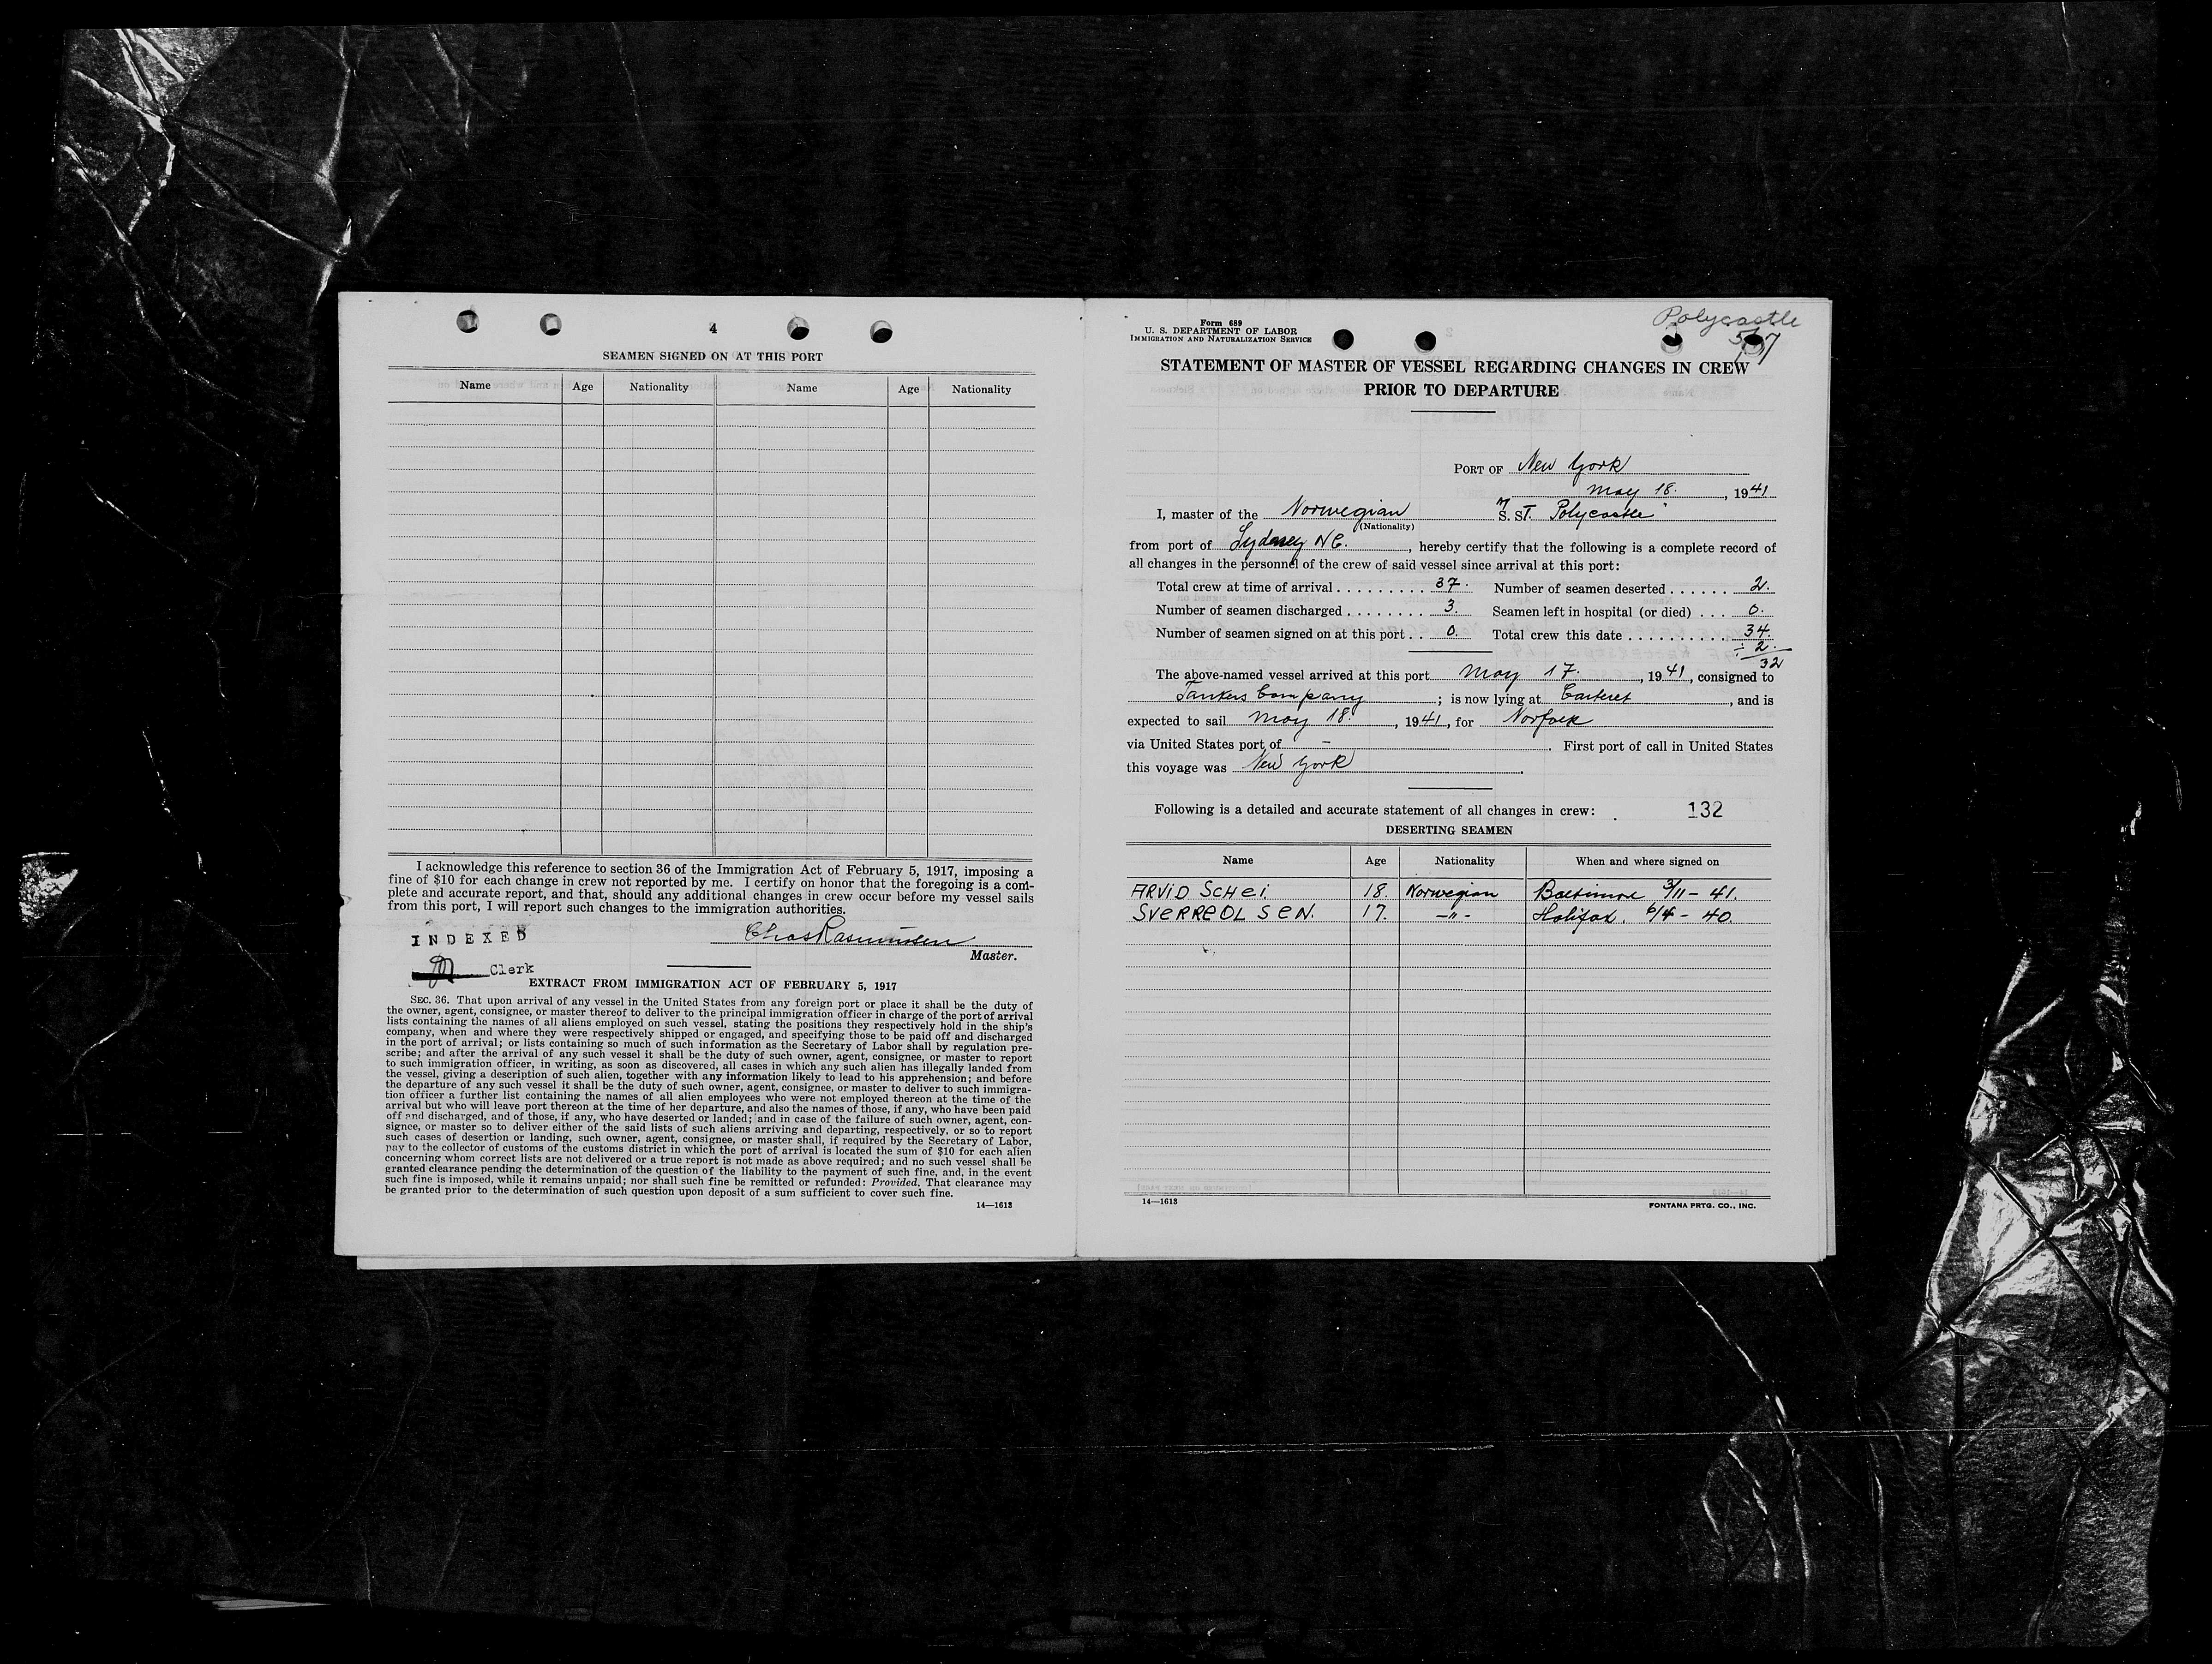 4
SEAMEN SIGNED ON AT THIS PORT
Name Age Nationality Name Age Nationality
I acknowledge this reference to section 36 of the Immigration Act of February 5, 1917, imposing a
fine of $10 for each change in crew not reported by me. I certify on honor that the foregoing is a com-
plete and accurate report, and that, should any additional changes in crew occur before my vessel sails
from this port, I will report such changes to the immigration authorities.
INDEXED
Chas Rasmussen
Master.
Clerk
EXTRACT FROM IMMIGRATION ACT OF FEBRUARY 5, 1917
SEC. 36. That upon arrival of any vessel in the United States from any foreign port or place it shall be the duty of
the owner, agent, consignee, or master thereof to deliver to the principal immigration officer in charge of the port of arrival
lists containing the names of all aliens employed on such vessel, stating the positions they respectively hold in the ship's
company, when and where they were respectively shipped or engaged, and specifying those to be paid off and discharged
in the port of arrival; or lists containing so much of such information as the Secretary of Labor shall by regulation pre-
scribe; and after the arrival of any such vessel it shall be the duty of such owner, agent, consignee, or master to report
to such immigration officer, in writing, as soon as discovered, all cases in which any such alien has illegally landed from
the vessel, giving a description of such alien, together with any information likely to lead to his apprehension; and before
the departure of any such vessel it shall be the duty of such owner, agent, consignee, or master to deliver to such immigra-
tion officer a further list containing the names of all alien employees who were not employed thereon at the time of the
arrival but who will leave port thereon at the time of her departure, and also the names of those, if any, who have been paid
off and discharged, and of those, if any, who have deserted or landed; and in case of the failure of such owner, agent, con-
signee, or master so to deliver either of the said lists of such aliens arriving and departing, respectively, or so to report
such cases of desertion or landing, such owner, agent, consignee, or master shall, if required by the Secretary of Labor,
pay to the collector of customs of the customs district in which the port of arrival is located the sum of $10 for each alien
concerning whom correct lists are not delivered or a true report is not made as above required; and no such vessel shall be
granted clearance pending the determination of the question of the liability to the payment of such fine, and, in the event
such fine is imposed, while it remains unpaid; nor shall such fine be remitted or refunded: Provided, That clearance may
be granted prior to the determination of such question upon deposit of a sum sufficient to cover such fine.
14—1613
Polycastle
5/17
Form 689
U. S. DEPARTMENT OF LABOR
IMMIGRATION AND NATURALIZATION SERVICE
STATEMENT OF MASTER OF VESSEL REGARDING CHANGES IN CREW
PRIOR TO DEPARTURE
PORT OF New York
May 18. , 1941
I, master of the Norwegian M S. ST. Polycastle"
(Nationality)
from port of Sydney N C. , hereby certify that the following is a complete record of
all changes in the personnel of the crew of said vessel since arrival at this port:
Total crew at time of arrival . . . . . . . . . . 37. Number of seamen deserted . . . . . . 2.
Number of seamen discharged . . . . . . . . 3. Seamen left in hospital (or died) . . . 0.
Number of seamen signed on at this port . . 0. Total crew this date . . . . . . . . . . 34.
÷ 2.
32
The above-named vessel arrived at this port May 17. , 1941 , consigned to
Tankers Company ; is now lying at Carteret , and is
expected to sail May 18. , 1941 , for Norfolk
via United States port of – . First port of call in United States
this voyage was New York .
Following is a detailed and accurate statement of all changes in crew: 132
DESERTING SEAMEN
Name Age Nationality When and where signed on
ARViD SCHei. 18. Norwegian Baltimore 3/11 - 41.
SVeRRe OLSeN. 17. -"- Halifax. 6/4 - 40.
14—1613
FONTANA PRTG. CO., INC.